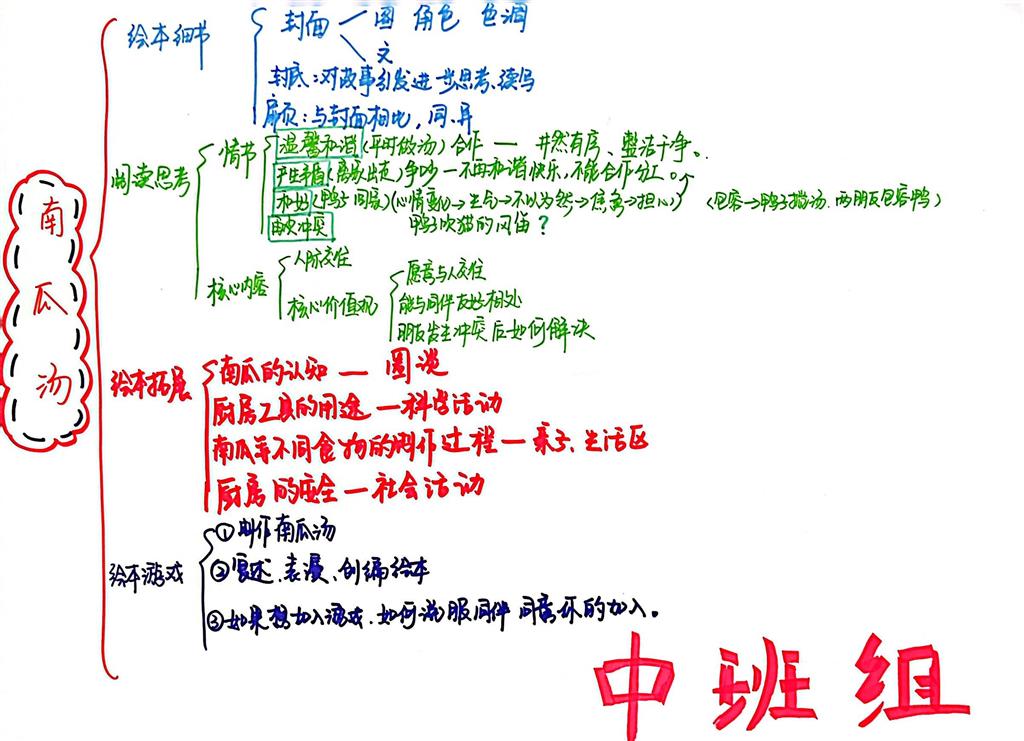 南瓜汤
绘本细节
封面 — 图 角色 色调
文
封底：对故事引发进一步思考、续写
扉页：与封面相比，同、异
阅读思考
情节
温馨和谐（平时做汤）合作 — 井然有序、整洁干净。
产生矛盾（离家出走）争吵 — 不再和谐快乐，不能合作分工。
和好（鸭子回家）（心情变化→生气→不以为然→焦急→担心）（包容→鸭子搅汤，两朋友包容鸭）
再次冲突 鸭子吹猫的风笛？
核心内容
人际交往
核心价值观
愿意与人交往
能与同伴友好相处
朋友发生冲突后如何解决
绘本拓展
南瓜的认知 — 圆谈
厨房工具的用途 — 科学活动
南瓜等不同食物的制作过程 — 亲子、生活区
厨房的安全 — 社会活动
绘本游戏
①制作南瓜汤
②复述、表演、创编绘本
③如果想加入游戏，如何说服同伴同意你的加入。
中班组